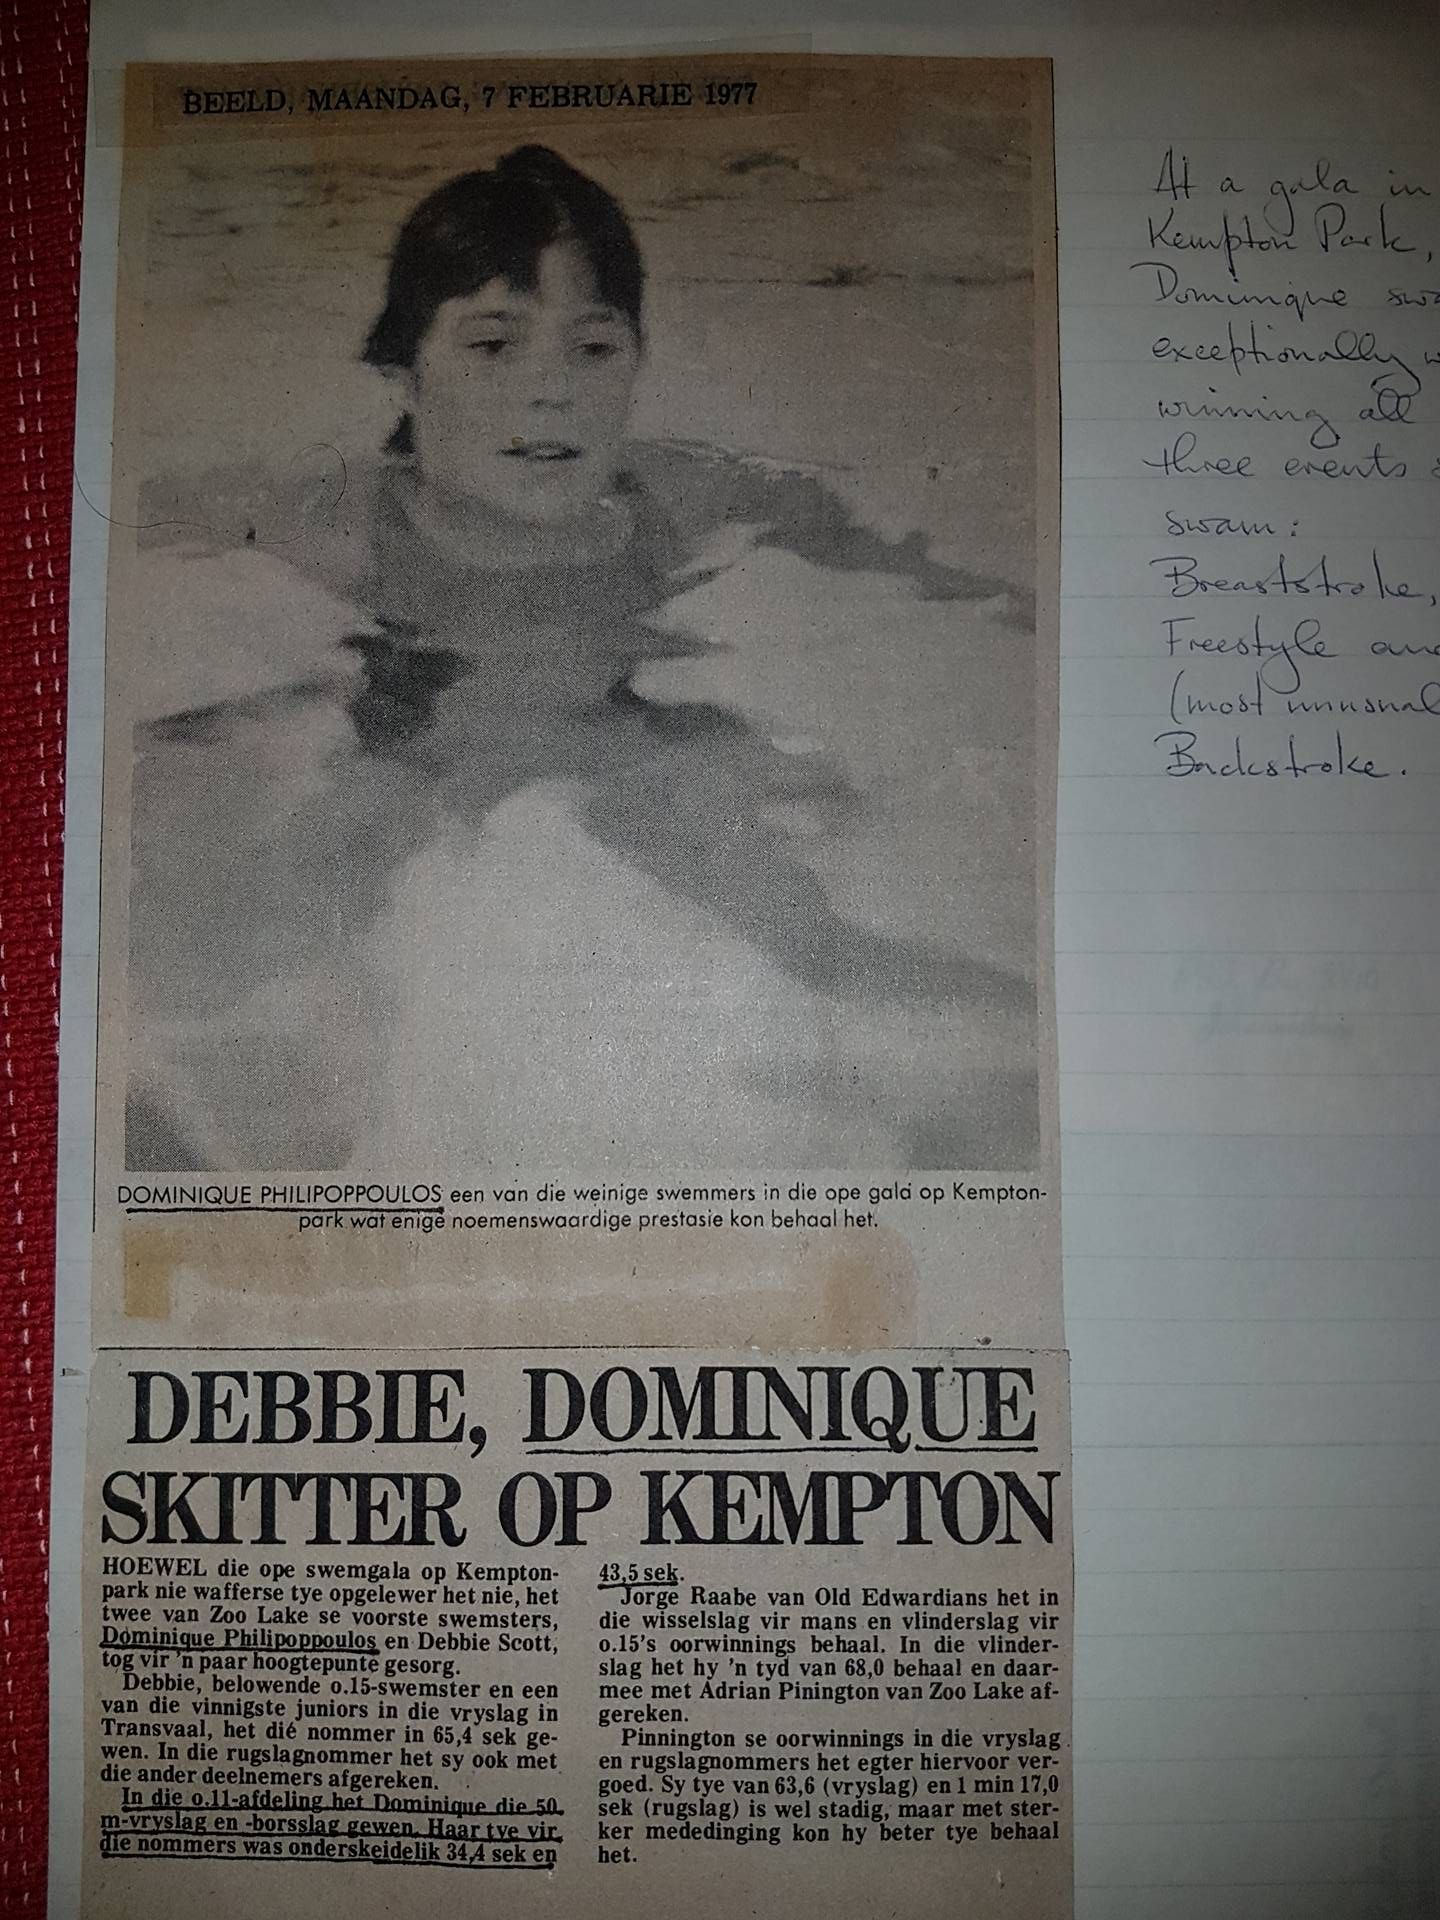 BEELD, MAANDAG, 7 FEBRUARIE 1977
DOMINIQUE PHILIPOPPOULOS een van die weinige swemmers in die ope gala op Kempton-
park wat enige noemenswaardige prestasie kon behaal het.
DEBBIE, DOMINIQUE
SKITTER OP KEMPTON
HOEWEL die ope swemgala op Kempton-
park nie wafferse tye opgelewer het nie, het
twee van Zoo Lake se voorste swemsters,
Dominique Philipoppoulos en Debbie Scott,
tog vir 'n paar hoogtepunte gesorg.
Debbie, belowende o.15-swemster en een
van die vinnigste juniors in die vryslag in
Transvaal, het dié nommer in 65,4 sek ge-
wen. In die rugslagnommer het sy ook met
die ander deelnemers afgereken.
In die o.11-afdeling het Dominique die 50
m-vryslag en -borsslag gewen. Haar tye vir
die nommers was onderskeidelik 34,4 sek en
43,5 sek.
Jorge Raabe van Old Edwardians het in
die wisselslag vir mans en vlinderslag vir
o.15's oorwinnings behaal. In die vlinder-
slag het hy 'n tyd van 68,0 behaal en daar-
mee met Adrian Pinington van Zoo Lake af-
gereken.
Pinnington se oorwinnings in die vryslag
en rugslagnommers het egter hiervoor ver-
goed. Sy tye van 63,6 (vryslag) en 1 min 17,0
sek (rugslag) is wel stadig, maar met ster-
ker mededinging kon hy beter tye behaal
het.
At a gala in
Kempton Park,
Dominique
exceptionally
winning all
three events
swam:
Breaststroke,
Freestyle
(most
Backstroke.